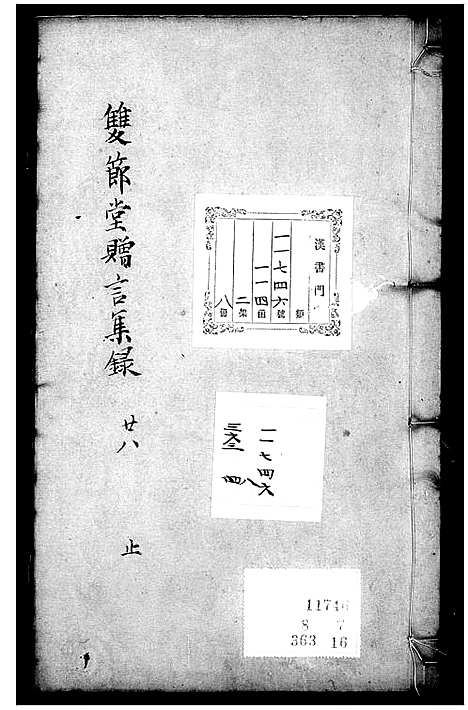 雙節堂贈言集録 廿八 止
漢書門
類
一一七四六號
一一四函
二架
八冊
一一七四六
八
三六三 四
11746
8 7
363 16